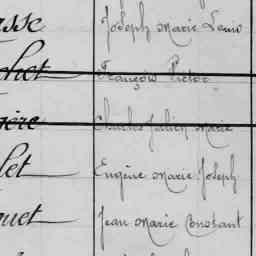 asse Joseph Marie Louis
chet François Victor
gère Charles Julien Marie
let Eugène Marie Joseph
quet Jean Marie Constant